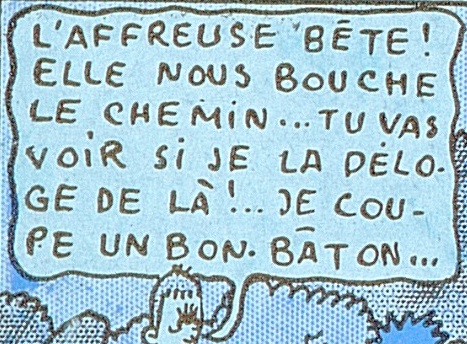 L'AFFREUSE BÊTE!
ELLE NOUS BOUCHE
LE CHEMIN... TU VAS
VOIR SI JE LA DÉLO-
GE DE LÀ!... JE COU-
PE UN BON BÂTON...